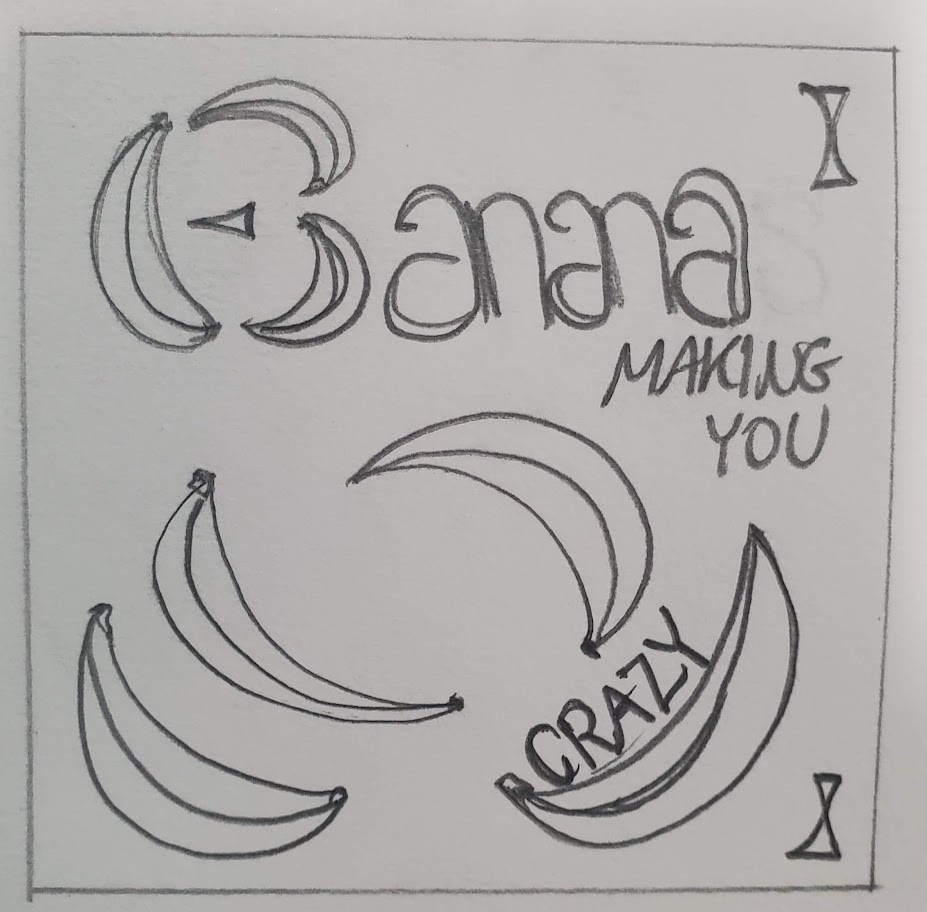 Banana
MAKING
YOU
CRAZY